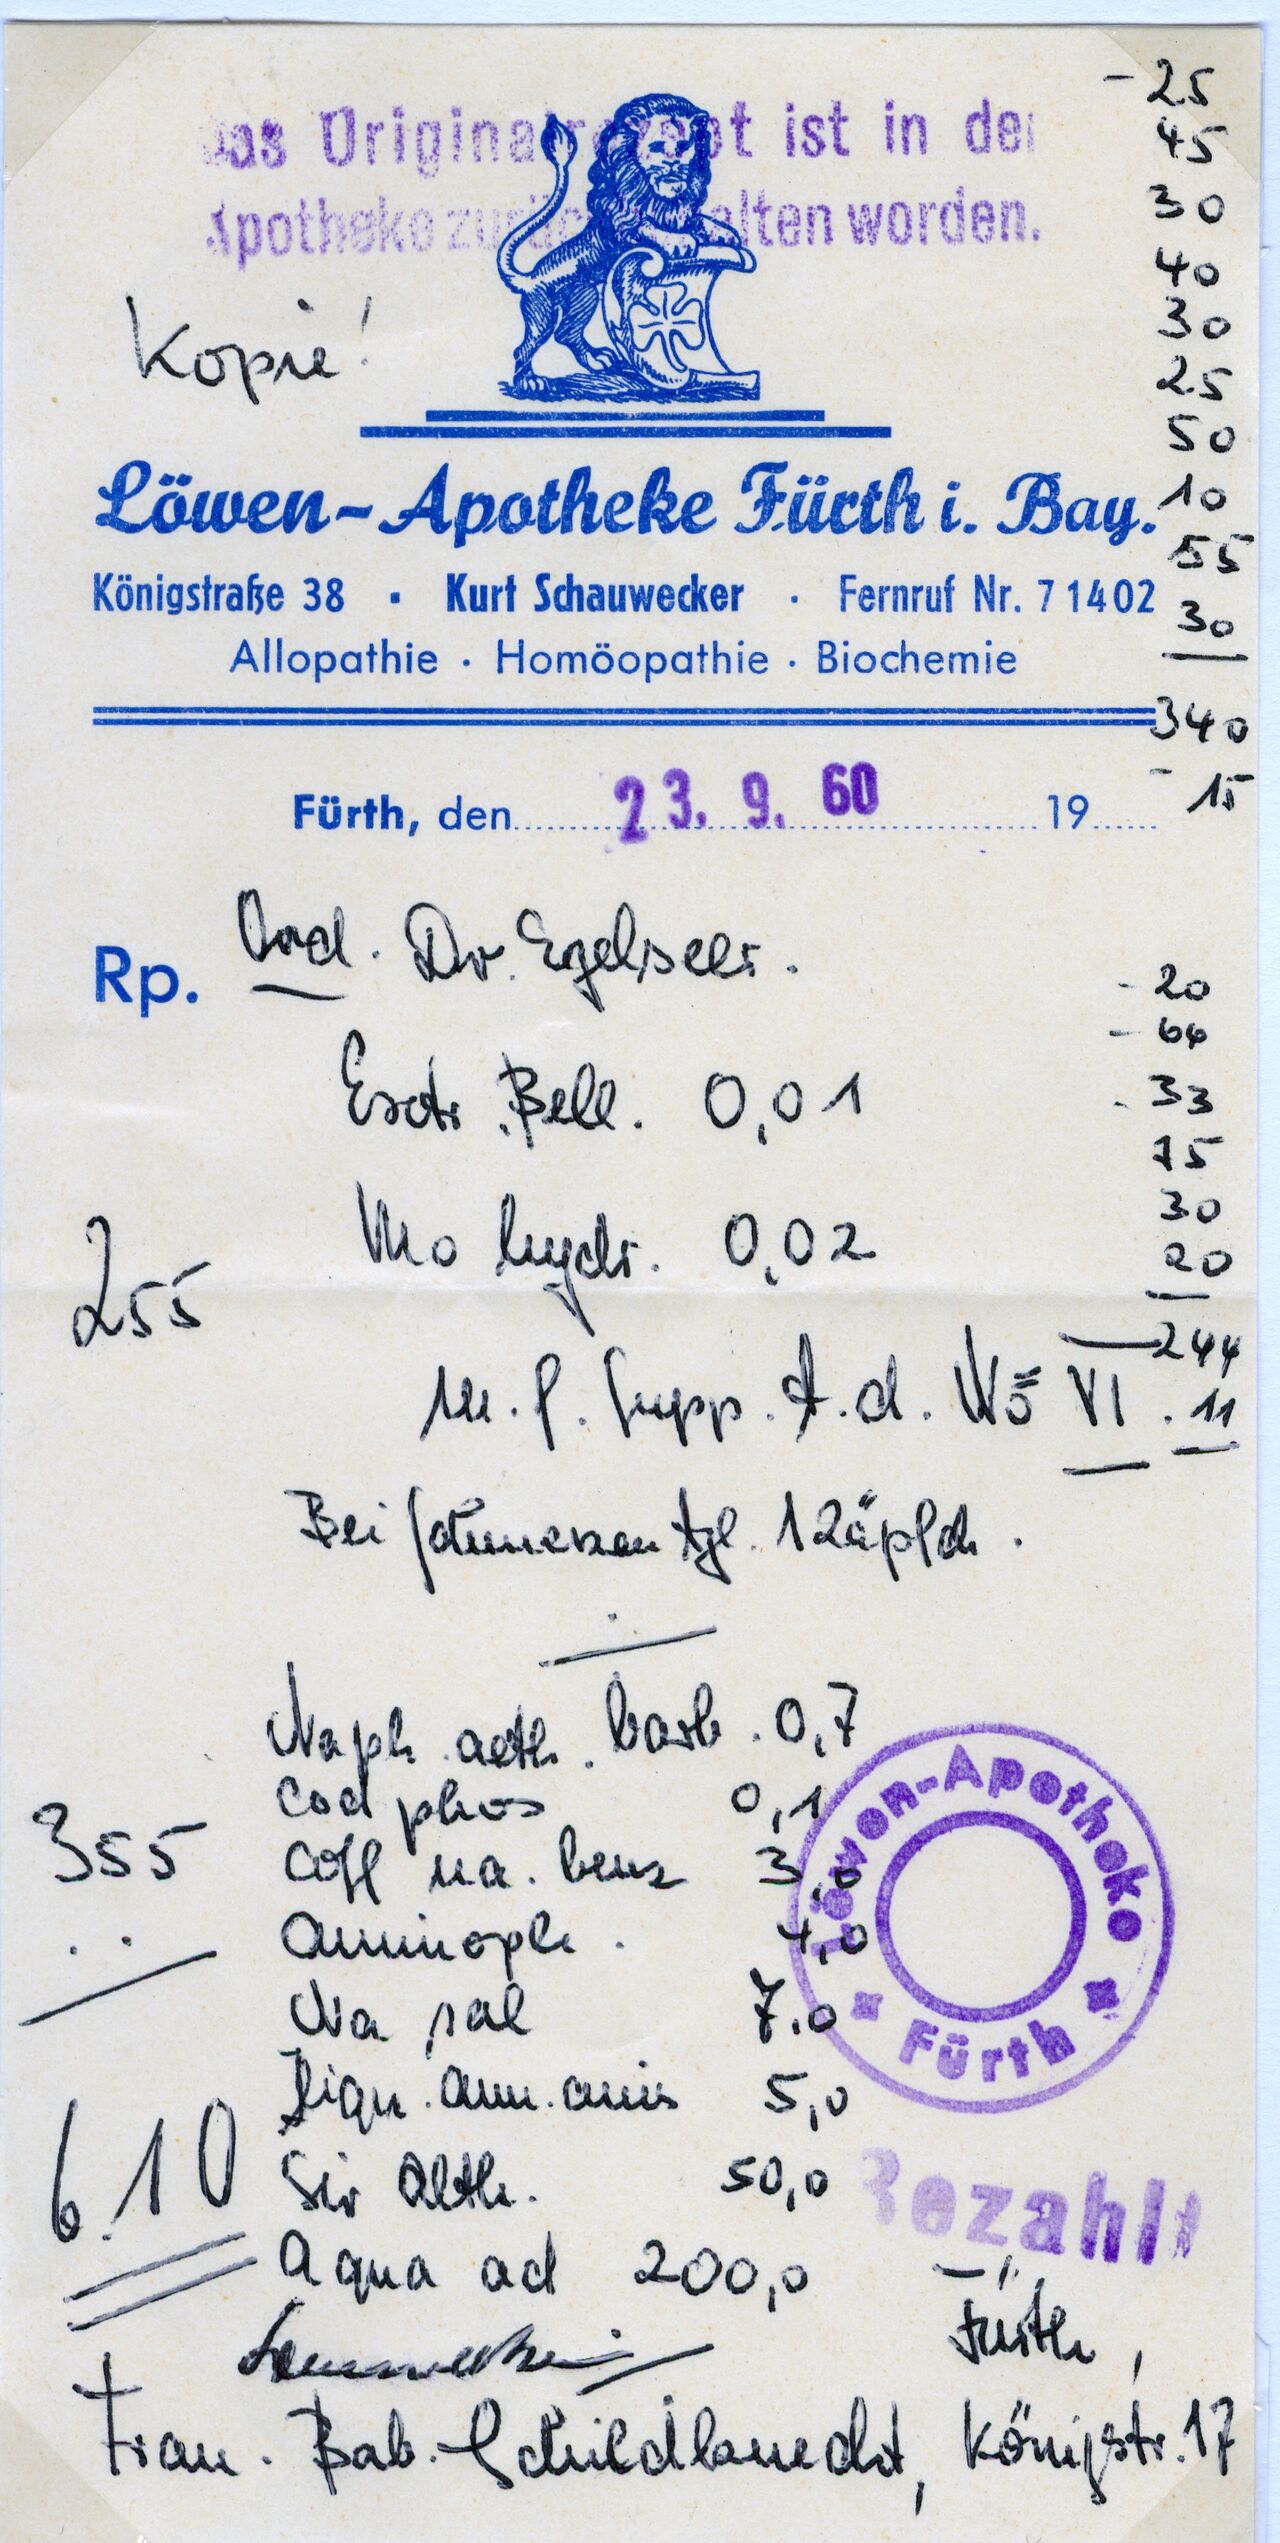 Das Originalrezept ist in der
Apotheke zurückgehalten worden.
Kopie!
Löwen-Apotheke Fürth i. Bay.
Königstraße 38 · Kurt Schauwecker · Fernruf Nr. 7 14 02
Allopathie · Homöopathie · Biochemie
- 25
45
30
40
30
25
50
10
55
30
340
- 15
Fürth, den 23. 9. 60 19
Rp. Ord. Dr. Egelseer.
- 20
- 66
- 33
75
30
20
244
11
Extr. Bell. 0,01
Mo hydr. 0,02
255
M. f. Supp. t. d. No VI.
Bei Schmerzen tgl. 1 Zäpfch.
Naph. aeth. barb. 0,7
Cod phos 0,1
Coff na. benz 3,0
355
Aminoph. 4,0
Na sal 7.0
Liqu. Amm. anis 5,0
Sir Alth. 50,0
6.10
Aqua ad 200,0
Löwen-Apotheke
Fürth
Bezahlt
Fürth,
Frau. Bab. Schildknecht, Königstr. 17